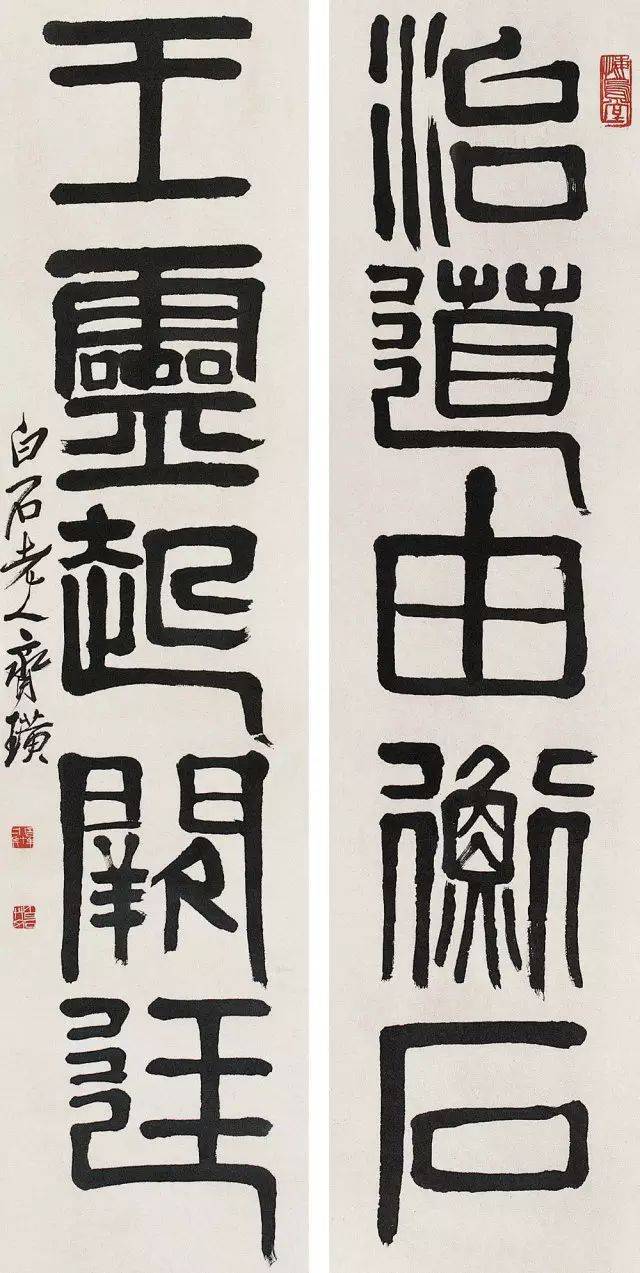 治道由衡石
王靈起闕廷
白石老人齊璜
悔烏堂